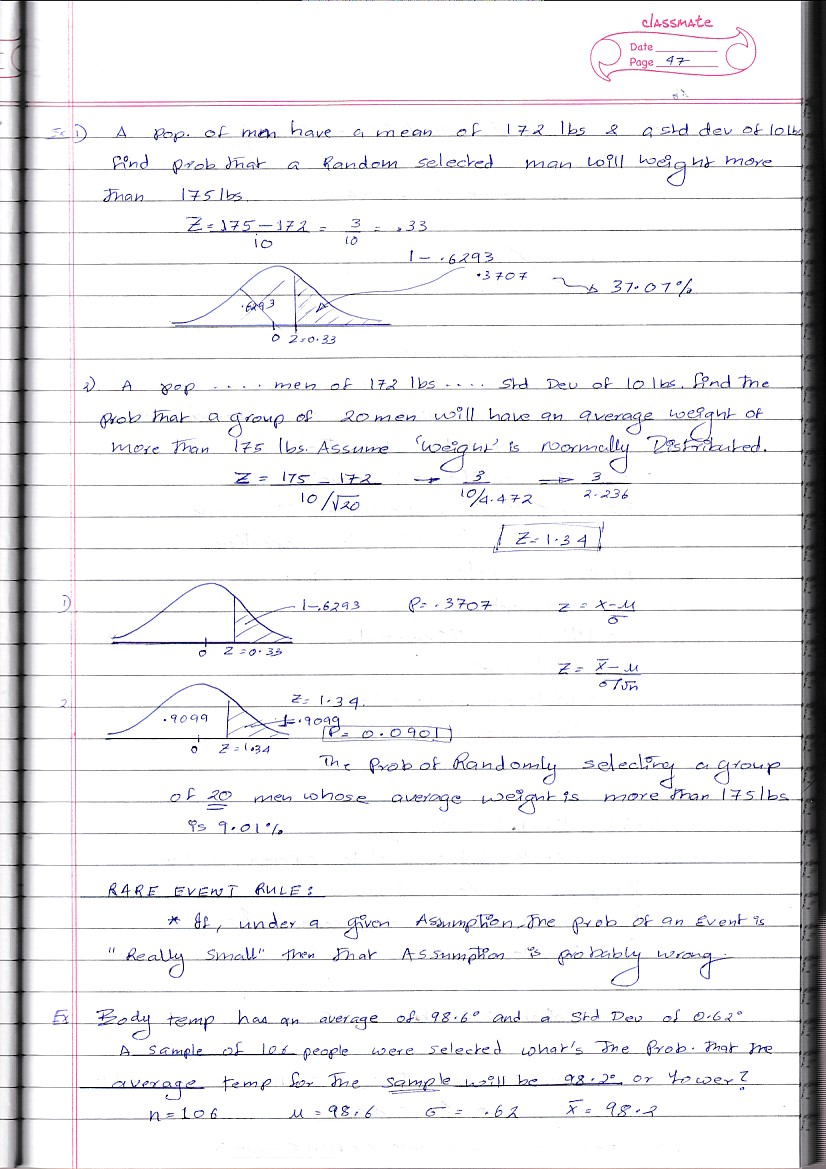 classmate
Date
Page 47
Ex 1) A pop. of men have a mean of 172 lbs & a std dev of 10 lbs
find prob that a Random selected man will weight more
than 175 lbs.
Z = 175 - 172 / 10 = 3/10 = .33
1 - .6293
.3707
37.07%
.6293
0 Z=0.33
2). A pop .... men of 172 lbs .... Std Dev of 10 lbs. find the
prob that a group of 20 men will have an average weight of
more than 175 lbs. Assume 'weight' is normally Distributed.
Z = 175 - 172 / 10/√20 → 3 / 10/4.472 ⇒ 3 / 2.236
Z = 1.34
1) 1-.6293 P = .3707 z = x-μ / σ
0 Z=0.33
Z = x̄-μ / σ/√n
2. Z = 1.34.
.9099 1-.9099
P = 0.0901
0 Z=1.34
The Prob of Randomly selecting a group
of 20 men whose average weight is more than 175 lbs
is 9.01%
RARE EVENT RULE:
* If, under a given Assumption the prob of an Event is
"Really Small" then that Assumption is probably wrong.
Ex Body temp has an average of 98.6° and a Std Dev of 0.62°
A sample of 106 people were selected what's the Prob. that the
average temp for the sample will be 98.2° or lower?
n = 106 μ = 98.6 σ = .62 x̄ = 98.2